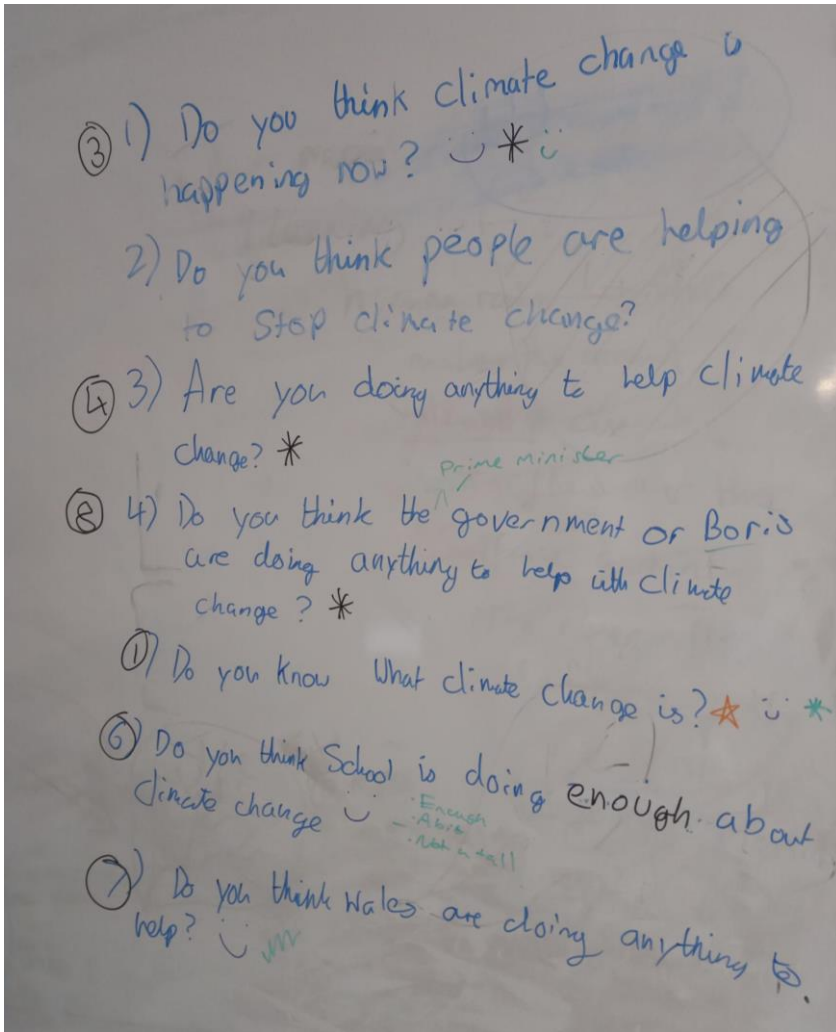 ③ 1) Do you think climate change is
happening now?
2) Do you think people are helping
to stop climate change?
④ 3) Are you doing anything to help climate
change? *
prime minister
⑧ 4) Do you think the government or Boris
are doing anything to help with climate
change? *
①) Do you know what climate change is?
⑥) Do you think School is doing enough about
climate change
· Enough
· A bit
· Not at all
⑦) Do you think Wales are doing anything to
help?